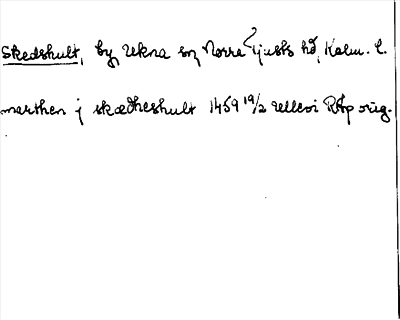 Skedshult, by, Ukna sn, Norra Tjusts hd, Kalm. l.
marthen j skædheshult 1459 19/2 Ullevi RAp orig.